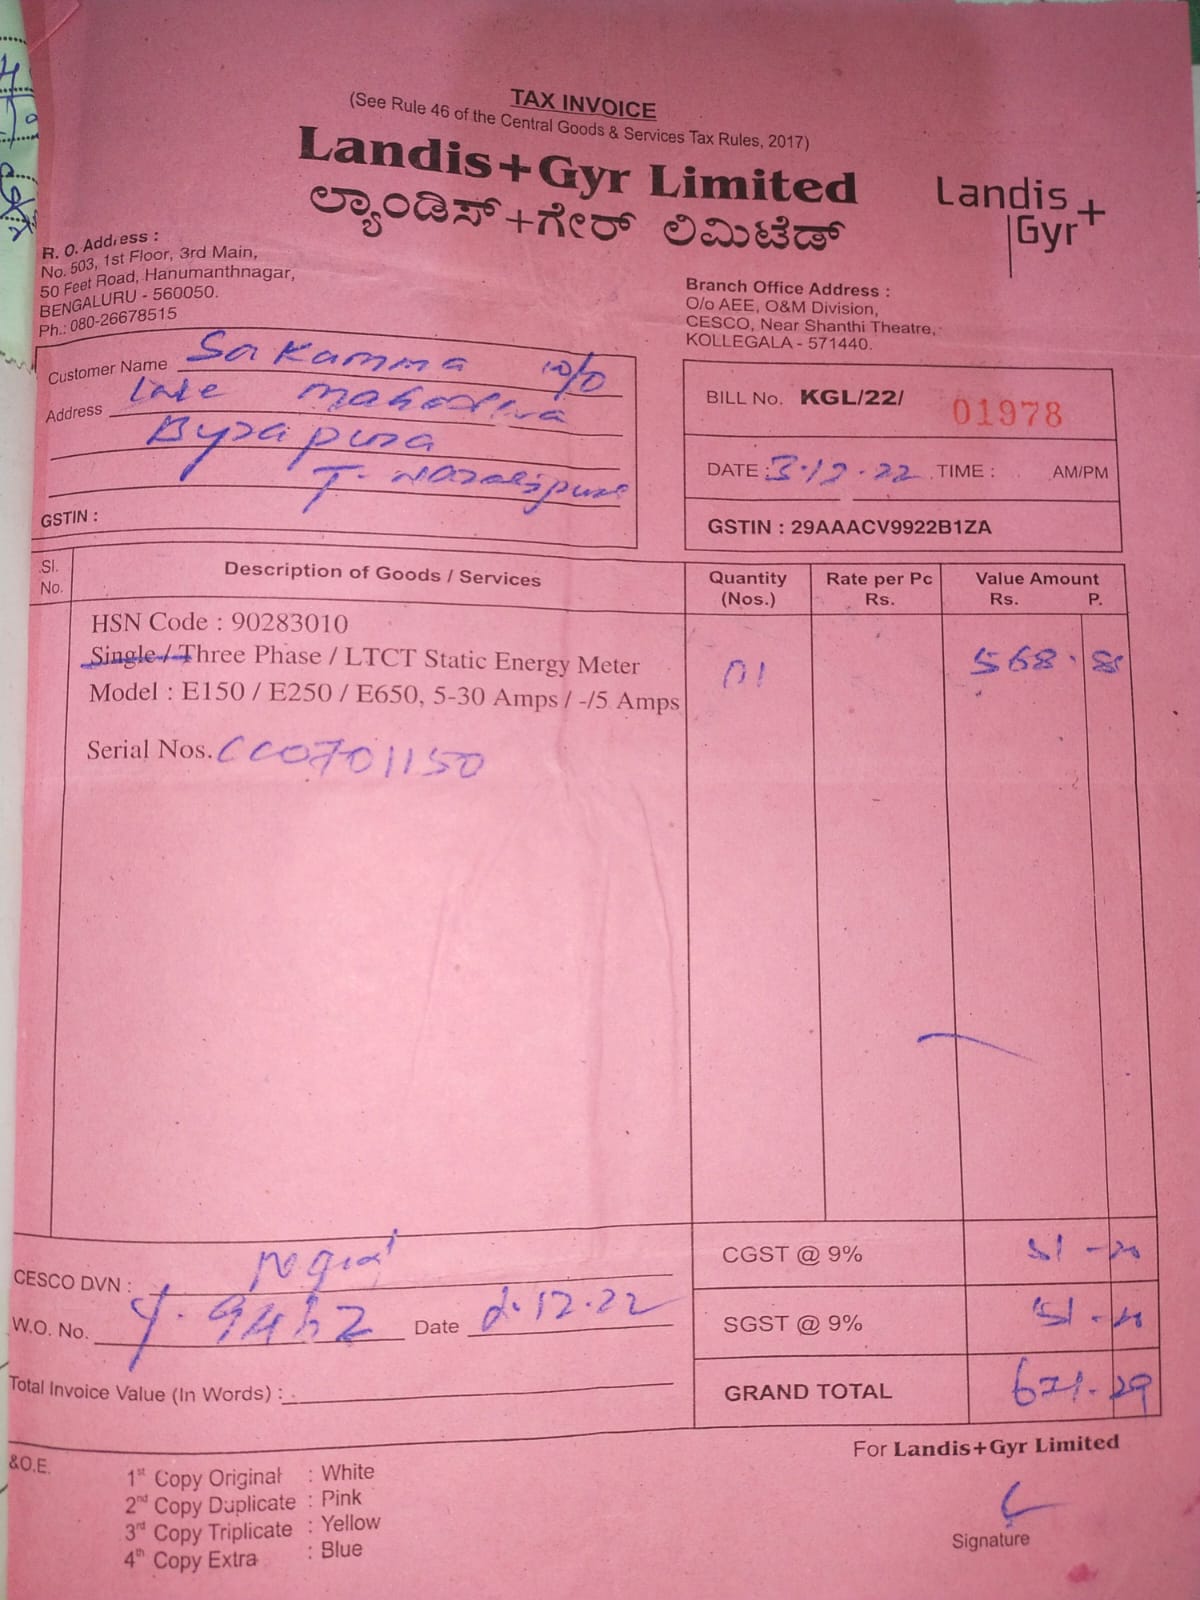 TAX INVOICE
(See Rule 46 of the Central Goods & Services Tax Rules, 2017)
Landis+Gyr Limited
ಲ್ಯಾಂಡಿಸ್+ಗೇರ್ ಲಿಮಿಟೆಡ್
Landis
Gyr+
R. O. Address :
No. 503, 1st Floor, 3rd Main,
50 Feet Road, Hanumanthnagar,
BENGALURU - 560050.
Ph.: 080-26678515
Branch Office Address :
O/o AEE, O&M Division,
CESCO, Near Shanthi Theatre,
KOLLEGALA - 571440.
Customer Name Sakamma w/o
Address Late Mahadeva
Byrapura
T. Narasipura
GSTIN :
BILL No. KGL/22/ 01978
DATE : 3.12.22 TIME : AM/PM
GSTIN : 29AAACV9922B1ZA
Sl. No. Description of Goods / Services Quantity (Nos.) Rate per Pc Rs. Value Amount Rs. P.
HSN Code : 90283010
Single / Three Phase / LTCT Static Energy Meter 01 568.
Model : E150 / E250 / E650, 5-30 Amps / -/5 Amps
Serial Nos. CC0701150
CESCO DVN :
W.O. No. Date 2.12.22
Total Invoice Value (In Words) :
CGST @ 9% 51 - 20
SGST @ 9% 51 - 20
GRAND TOTAL 671.29
For Landis+Gyr Limited
&O.E.
1st Copy Original : White
2nd Copy Duplicate : Pink
3rd Copy Triplicate : Yellow
4th Copy Extra : Blue
Signature